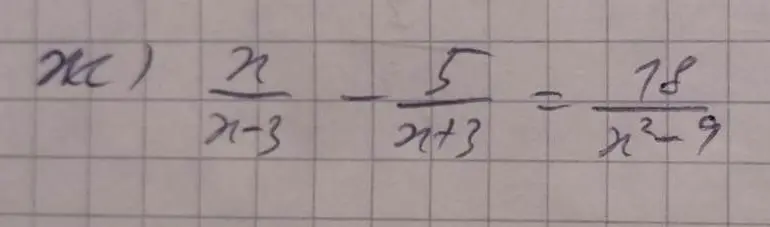 ж) x/(x-3) - 5/(x+3) = 18/(x²-9)